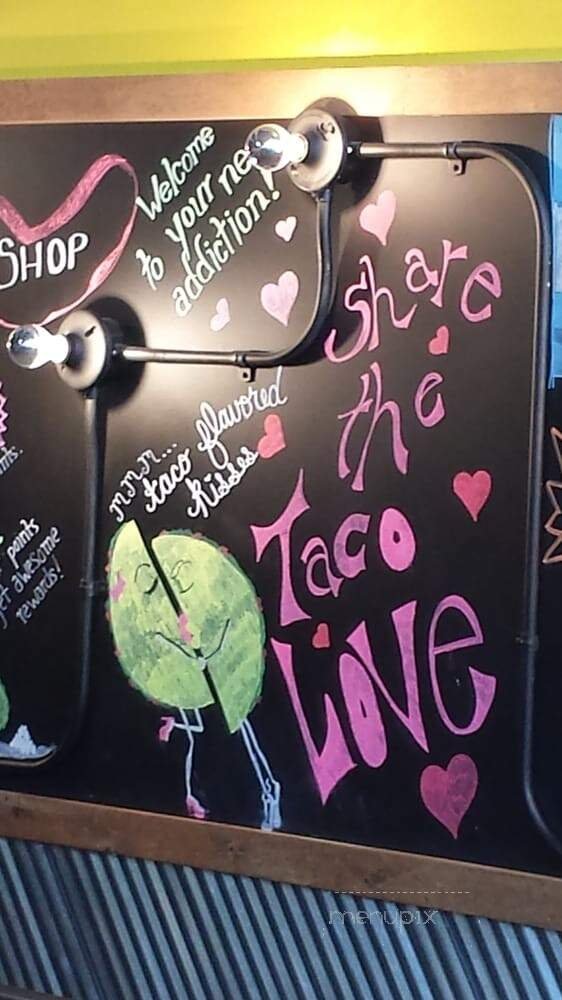 SHOP
Welcome
to your new
addiction!
Share
the
Taco
LOVE
mmm...
taco flavored
kisses
points
get awesome
rewards!
menupix